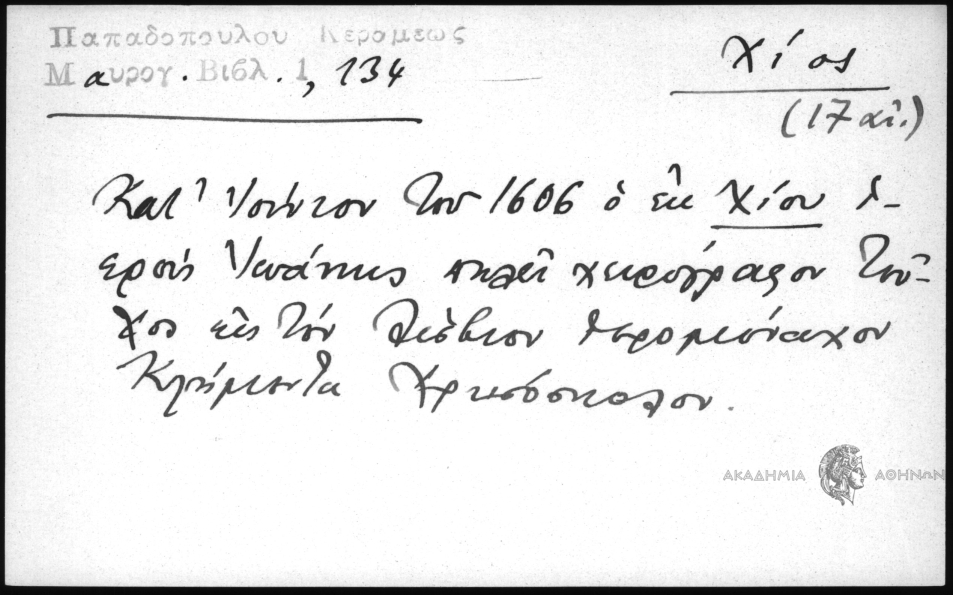 Παπαδοπούλου Κεραμέως
Μαυρογ. Βιβλ. 1, 134
Χίος
(17 αἰ.)
Κατ' Ἰούνιον τοῦ 1606 ὁ ἐκ Χίου ἱ-
ερεὺς Ἰωάννης πωλεῖ χειρόγραφον τεῦ-
χος εἰς τὸν Λέσβιον ἱερομόναχον
Κλήμεντα Χρυσόσκολον.
ΑΚΑΔΗΜΙΑ ΑΘΗΝΩΝ